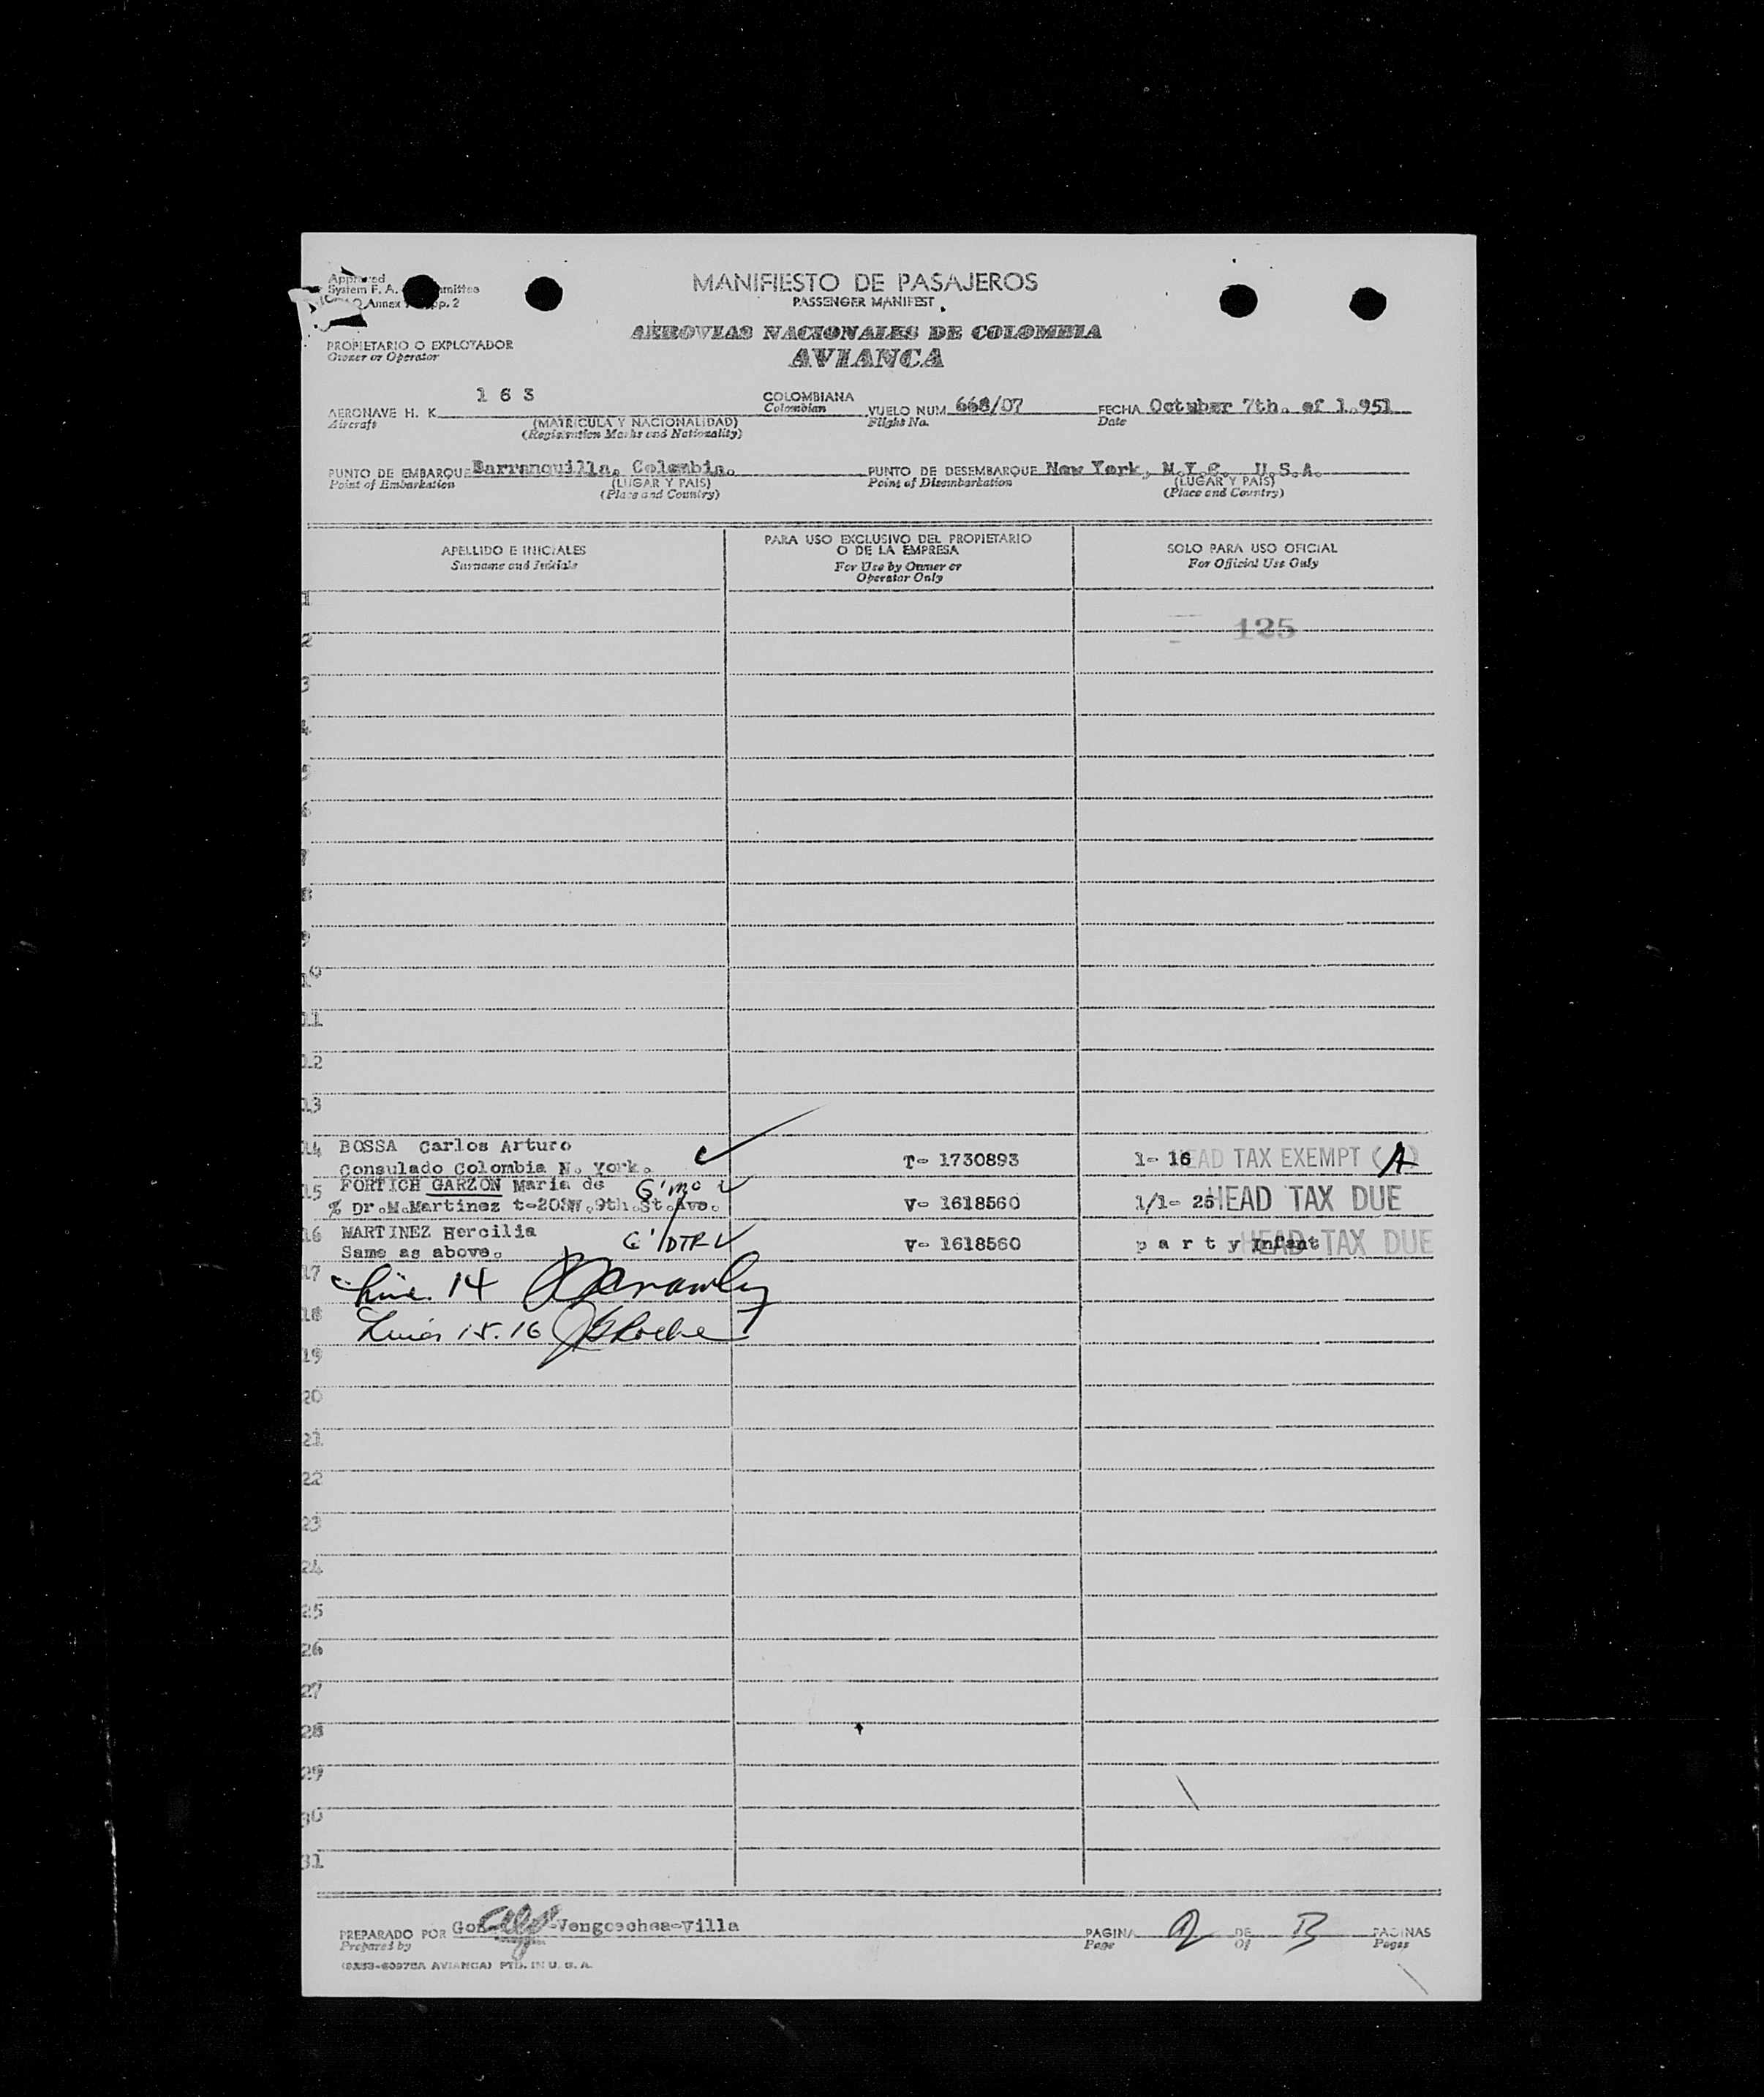 Approved
System F. A.
Annex
MANIFIESTO DE PASAJEROS
PASSENGER MANIFEST
AEROVIAS NACIONALES DE COLOMBIA
AVIANCA
PROPIETARIO O EXPLOTADOR
Owner or Operator
AERONAVE H. K. 1 6 3 COLOMBIANA VUELO NUM. 668/07 FECHA October 7th. of 1.951
Aircraft (MATRICULA Y NACIONALIDAD) Colombian Flight No. Date
(Registration Marks and Nationality)
PUNTO DE EMBARQUE Barranquilla, Colombia. PUNTO DE DESEMBARQUE New York, N.Y.C. U.S.A.
Point of Embarkation (LUGAR Y PAIS) Point of Disembarkation (LUGAR Y PAIS)
(Place and Country) (Place and Country)
APELLIDO E INICIALES PARA USO EXCLUSIVO DEL PROPIETARIO O DE LA EMPRESA SOLO PARA USO OFICIAL
Surname and Initials For Use by Owner or Operator Only For Official Use Only
1
125
2
3
4
5
6
7
8
9
10
11
12
13
14 BOSSA Carlos Arturo
Consulado Colombia N. York. T- 1730893 1- 16 HEAD TAX EXEMPT (A)
15 FORTICH GARZON Maria de
% Dr.M.Martinez t-20SW.9th.St.Ave. V- 1618560 1/1- 25 HEAD TAX DUE
16 MARTINEZ Hercilia
Same as above. V- 1618560 p a r t y Infant HEAD TAX DUE
17 Line 14
18 Lines 15.16
19
20
21
22
23
24
25
26
27
28
29
30
31
PREPARADO POR -Vengoechea-Villa PAGINA 2 DE B PAGINAS
Prepared by Page Of Pages
AVIANCA) PTD. IN U. S. A.